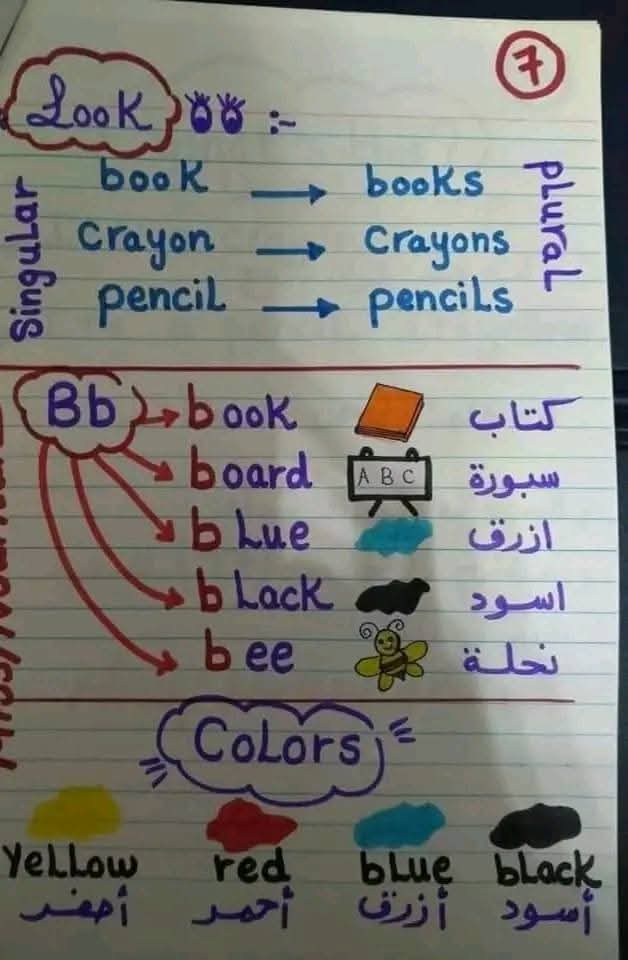 7
Look :-
Singular
plural
book → books
crayon → crayons
pencil → pencils
Bb
book كتاب
board A B C سبورة
blue ازرق
black اسود
bee نحلة
Colors
yellow red blue black
أصفر أحمر أزرق أسود